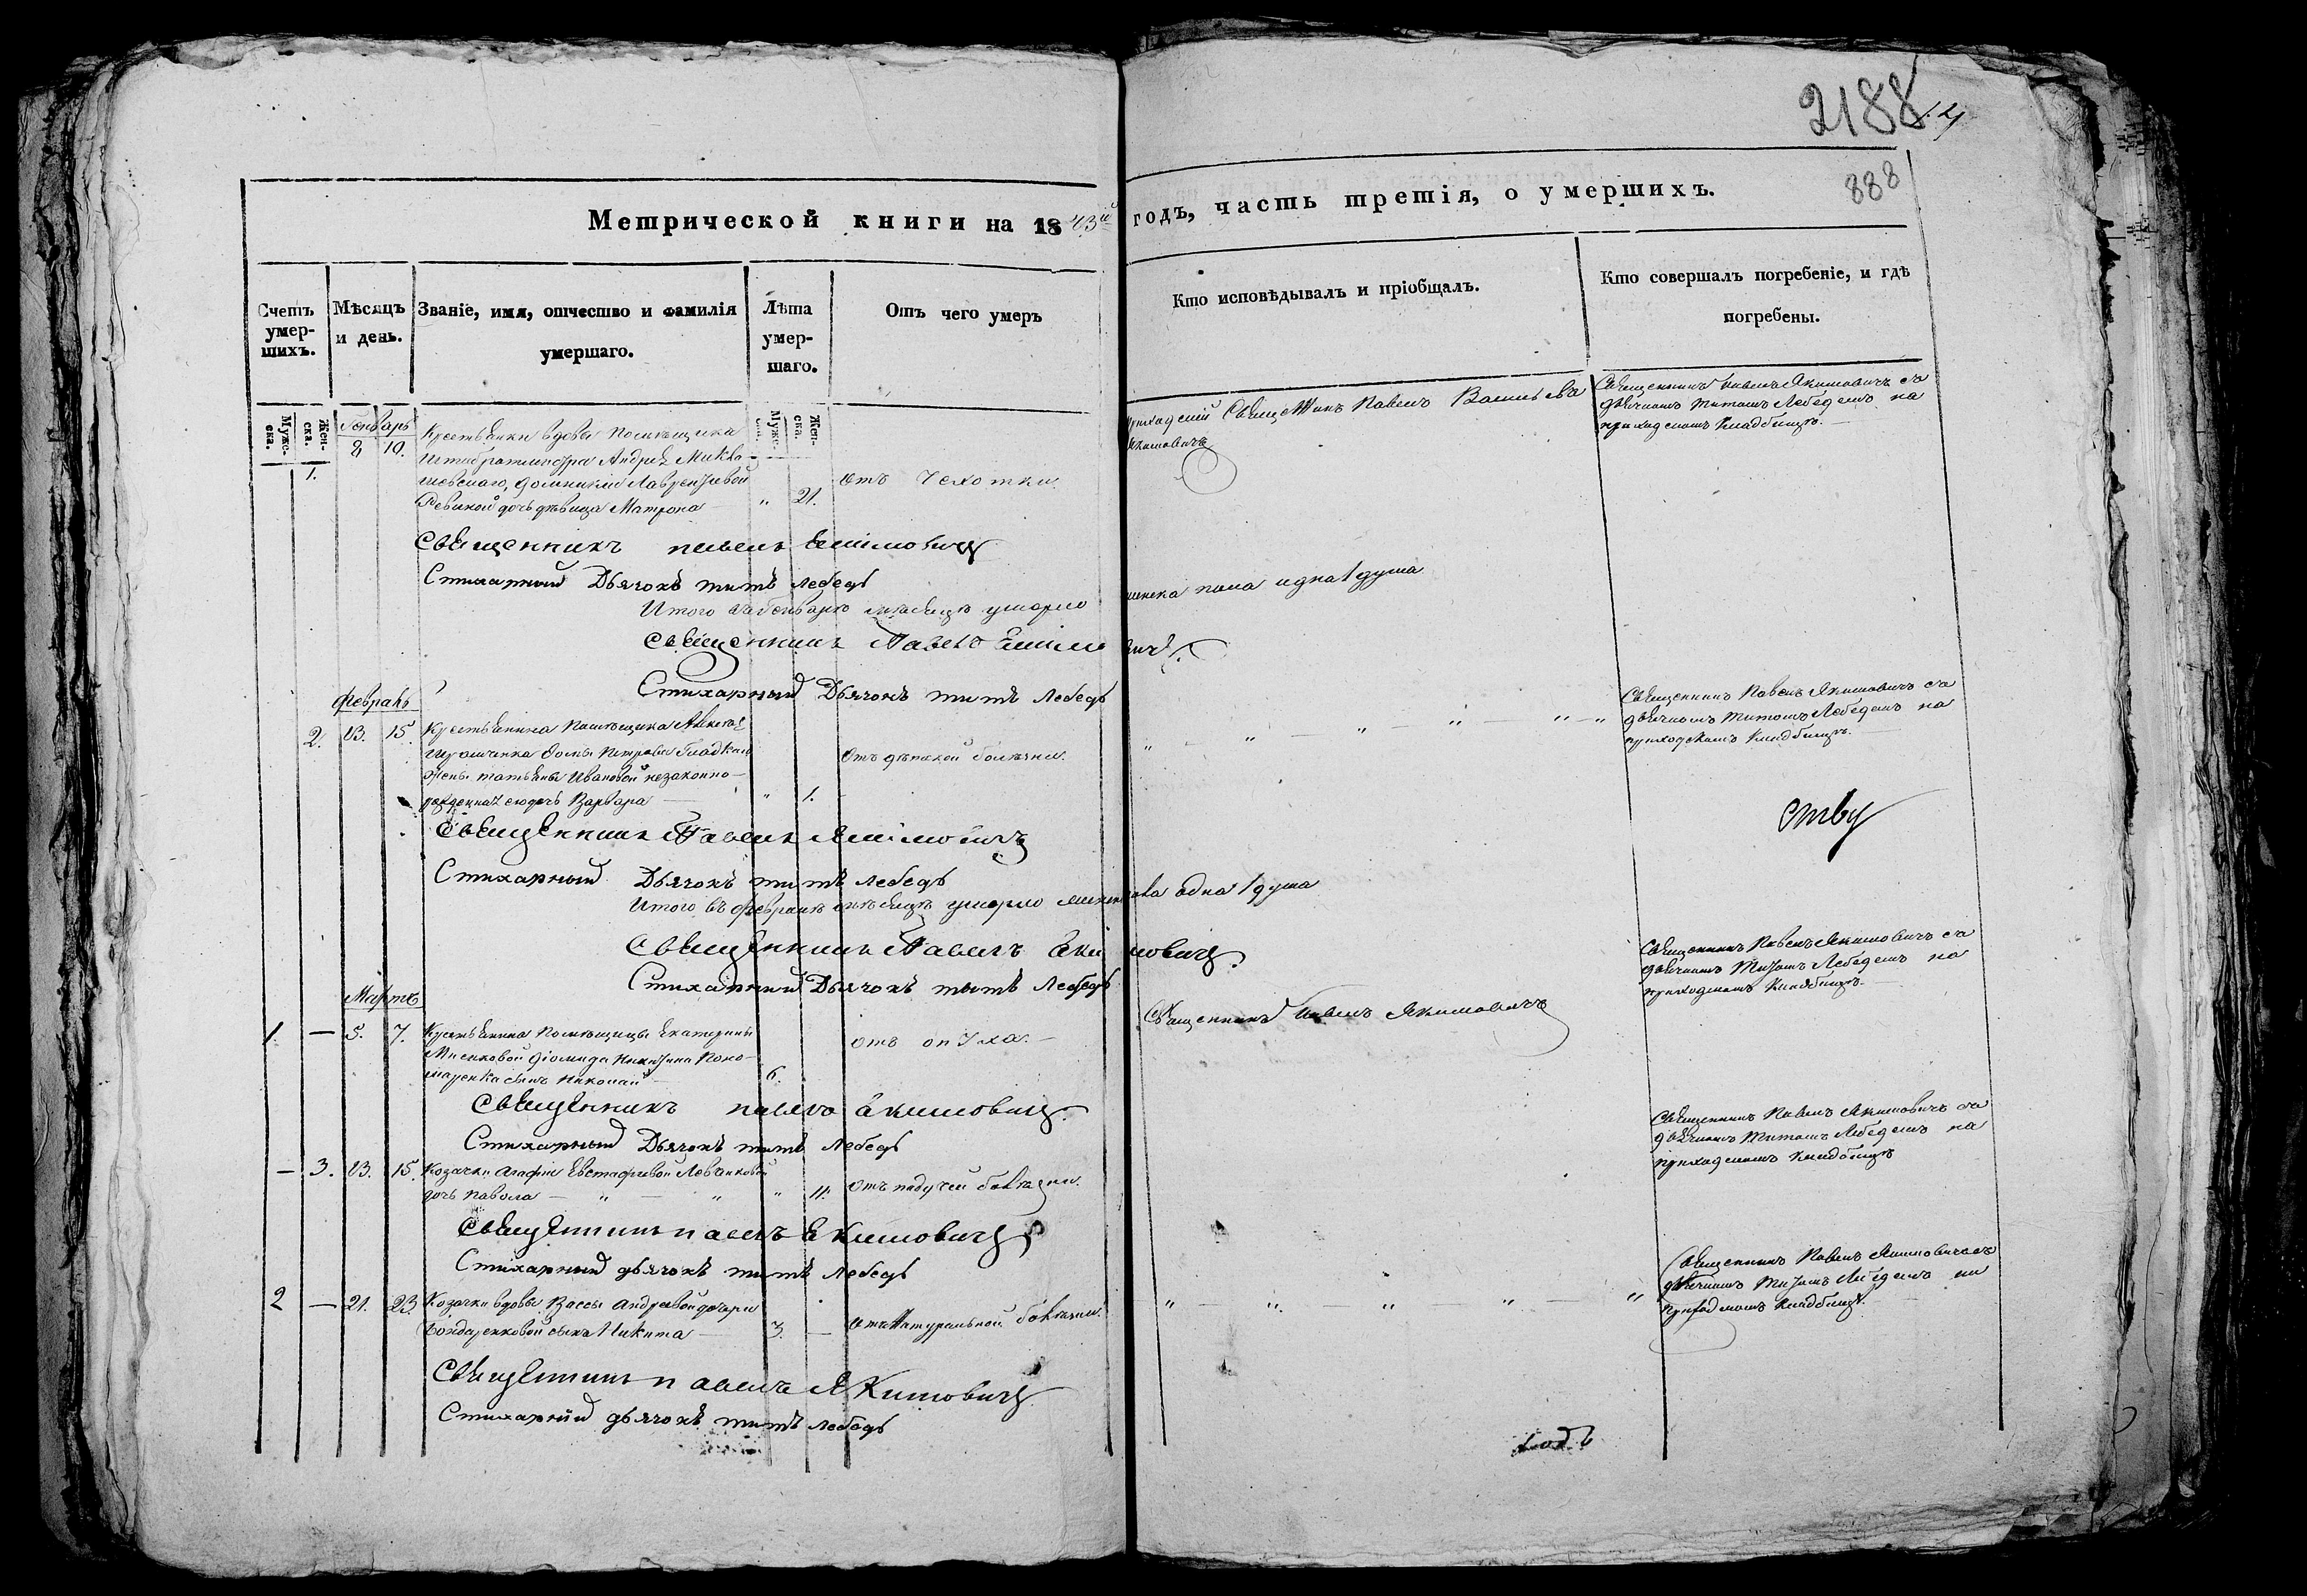 2188
888
Метрической книги на 1843й годъ, часть третія, о умершихъ.
Счетъ умерших.
Мѣсяцъ и день.
Званіе, имя, отчество и фамилія умершаго.
Лѣта умершаго.
Отъ чего умеръ
Кто исповѣдывалъ и пріобщалъ.
Кто совершалъ погребеніе, и гдѣ погребены.
Мужеска. Женска.
Мужес. Женска.
Генварь
1. 8 10. Крестьянки вдовы Помѣщика
Штабротмистра Андрея
Лаврентіевой
дочь дѣвица Матрона „ 21. отъ Чехотки
Священникъ Павелъ
Якимовичъ
Священникъ Павелъ Якимовичъ съ
дьячкомъ Титомъ Лебедемъ на
приходскомъ кладбищѣ.
Священникъ Павелъ Якимовичъ
Стихарный Дьячокъ Титъ Лебедь
Итого въ Генварѣ мѣсяцѣ умерло женска пола одна 1 душа
Священникъ Павелъ Якимовичъ
Стихарный Дьячокъ Титъ Лебедь
Февраль
2. 13. 15. Крестьянина Помѣщика
Петрова
жены Татьяны Ивановой незаконно-
рожденная дочь Варвара „ 1. Отъ дѣтской болѣзни.
„ „ „ „ „ „
Священникъ Павелъ Якимовичъ съ
дьячкомъ Титомъ Лебедемъ на
приходскомъ кладбищѣ.
Священникъ Павелъ Якимовичъ
Стихарный Дьячокъ Титъ Лебедь
Итого въ Февралѣ мѣсяцѣ умерло одна 1 душа
Священникъ Павелъ Якимовичъ
Стихарный Дьячокъ Титъ Лебедь
Мартъ
1. — 5. 7. Крестьянина Помѣщицы Екатерины
Діомида Никитина Поно-
маренка сынъ Николай 6. отъ опуха.
Священникъ Павелъ Якимовичъ
Священникъ Павелъ Якимовичъ съ
дьячкомъ Титомъ Лебедемъ на
приходскомъ кладбищѣ.
Священникъ Павелъ Якимовичъ
Стихарный Дьячокъ Титъ Лебедь
— 3. 13. 15. Козачки Агафіи Евстафіевой
дочь „ „ „ 11. Отъ падучей болѣзни.
Священникъ Павелъ Якимовичъ съ
дьячкомъ Титомъ Лебедемъ на
приходскомъ кладбищѣ
Священникъ Павелъ Якимовичъ
Стихарный дьячокъ Титъ Лебедь
2 — 21. 23. Козачки вдовы Вассы Андреевой дочери
Бондаренковой сынъ Никита 3. — Отъ Натуральной болѣзни.
„ „ „ „ „
Священникъ Павелъ Якимовичъ съ
дьячкомъ Титомъ Лебедемъ на
приходскомъ кладбищѣ.
Священникъ Павелъ Якимовичъ
Стихарный дьячокъ Титъ Лебедь